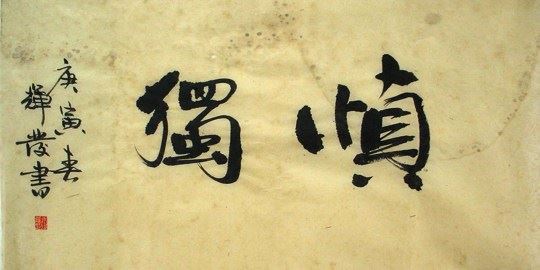 慎獨
庚寅春
輝發書